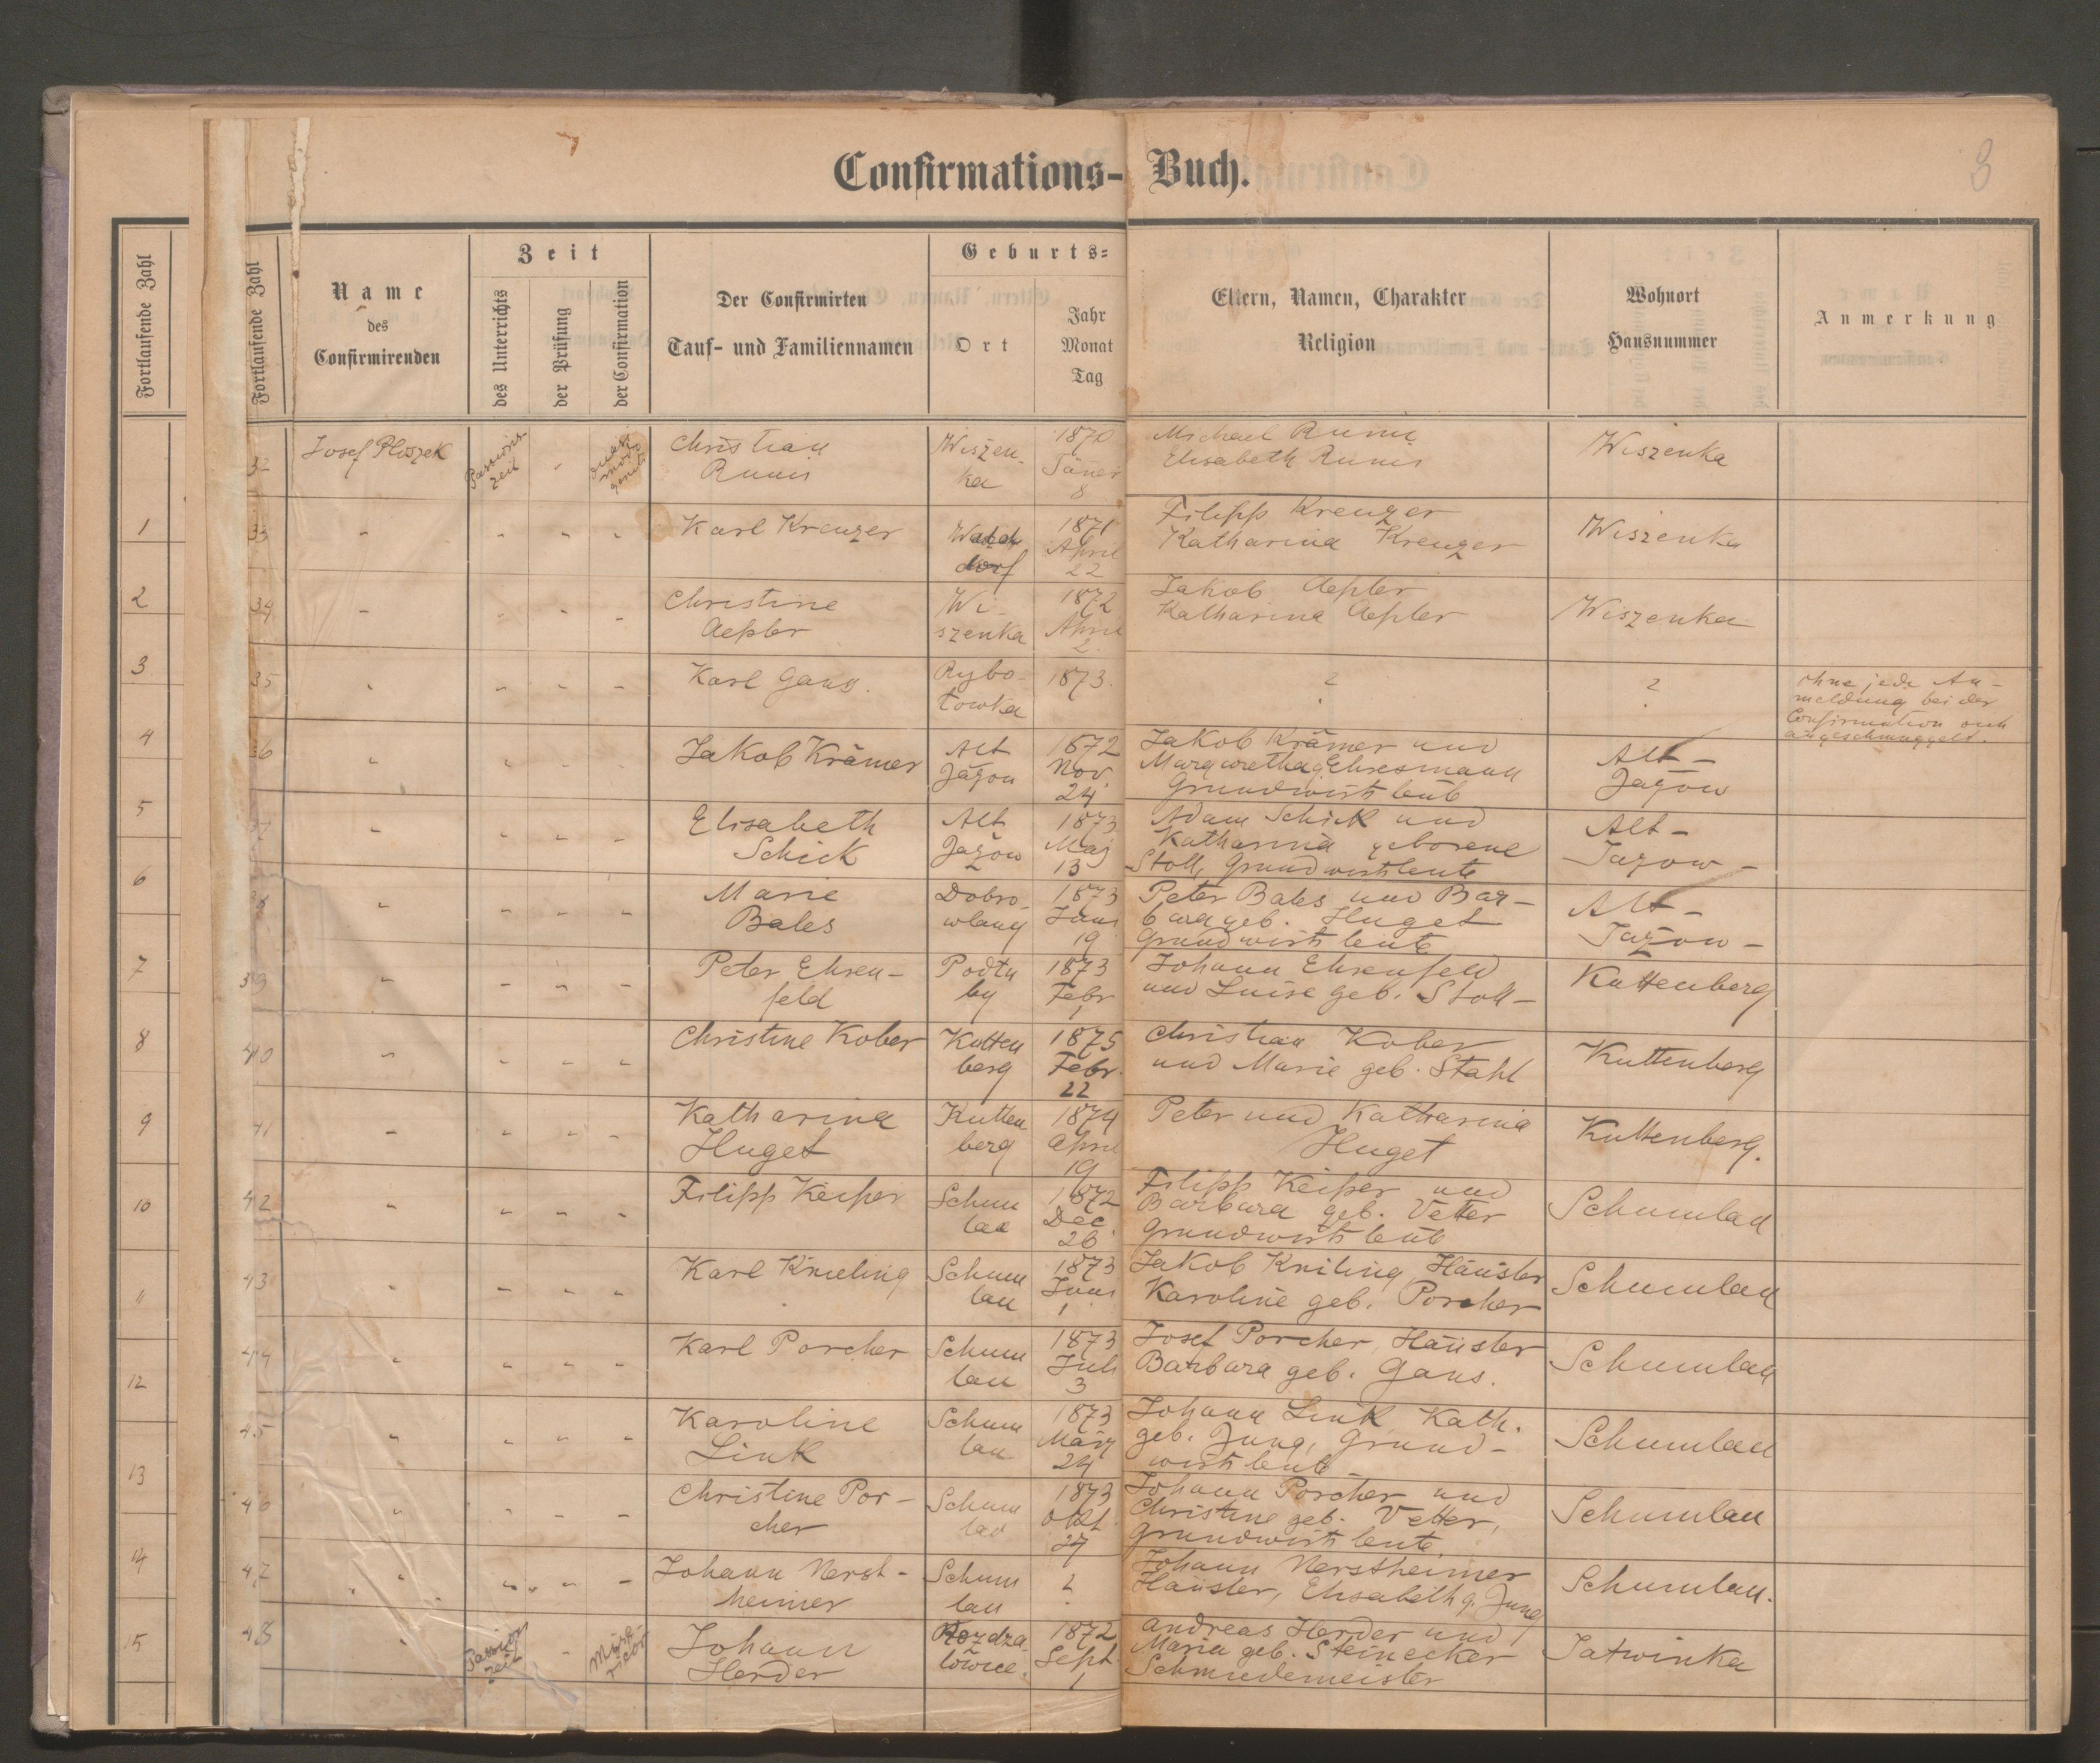 Confirmations-Buch.
3
Fortlaufende Zahl
Fortlaufende Zahl
Name
des
Confirmirenden
Zeit
des Unterrichts
der Prüfung
der Confirmation
Der Confirmirten
Tauf- und Familiennamen
Geburts-
Ort
Jahr
Monat
Tag
Eltern, Namen, Charakter
Religion
Wohnort
Hausnummer
Anmerkung
1
2
3
4
5
6
7
8
9
10
11
12
13
14
15
32
Josef Ploszek
Passions-
zeit
"
quasi
modo
geniti
Christian
Wiszen-
ka
1870
Jäner
8
Michael
Elisabeth
Wiszenka
33
" " " "
Karl Kreuzer
dorf
1871
April
22
Filipp Kreuzer
Katharina Kreuzer
Wiszenka
34
" " " "
Christine
Aepler
Wi-
szenka
1872
April
2.
Jakob Aepler
Katharina Aepler
Wiszenka
35
" " " "
Karl Gans.
Rybo-
towka
1873.
?
?
ohne jede An-
meldung bei der
Confirmation
angeschmuggelt.
36
" " " "
Jakob Krämer
Alt
Jażow
1872
Nov.
24
Jakob Krämer und
Margaretha g Ehresmann
Grundwirtsleute
Alt-
Jażow
37
" " " "
Elisabeth
Schick
Alt
Jażow
1873
Maj
13
Adam Schick und
Katharina geborene
Stoll, Grundwirtsleute
Alt-
Jazow-
38
" " " "
Marie
Bales
Dobro-
wlany
1873
Juni
19
Peter Bales und Bar-
bara geb. Huget
Grundwirtsleute
Alt-
Jażow-
39
" " " "
Peter Ehren-
feld
Podtu
by
1873
Febr
1
Johann Ehrenfeld
und Luise geb. Stoll-
Kuttenberg
40
" " " "
Christine Kober
Kutten
berg
1875
Febr.
22
Christian Kober
und Marie geb. Stahl
Kuttenberg
41
" " " "
Katharina
Huget
Kutten
berg
1874
April
19
Peter und Katharina
Huget
Kuttenberg.
42
" " " "
Filipp Keiper
Schum
lau
1872
Dec.
26
Filipp Keiper und
Barbara geb. Vetter
Grundwirtsleute
Schumlau
43
" " " "
Karl Knieling
Schum
lau
1873
Juni
1
Jakob Kniling, Häusler
Karoline geb. Porcher
Schumlau
44
" " " "
Karl Porcher
Schum
lau
1873
Juli
3
Josef Porcher, Häusler
Barbara geb. Gans.
Schumlau
45
" " " "
Karoline
Link
Schum
lau
1873
März
24
Johann Link Kath.
geb. Jung, Grund-
wirtsleute
Schumlau
46
" " " "
Christine Por-
cher
Schum
lau
1873
Okt.
27
Johann Porcher und
Christine geb. Vetter,
Grundwirtsleute.
Schumlau
47
" " " "
Johann Nerst-
heimer
Schum
lau
?
Johann Nerstheimer
Häusler, Elisabeth g. Jung
Schumlau.
48
"
Passions
zeit
"
Mise-
ricor
Johann
Herder
Rozdza
lówce.
1872
Sept.
1
Andreas Herder und
Maria geb. Steinecker
Schmiedemeister
Jatwinka